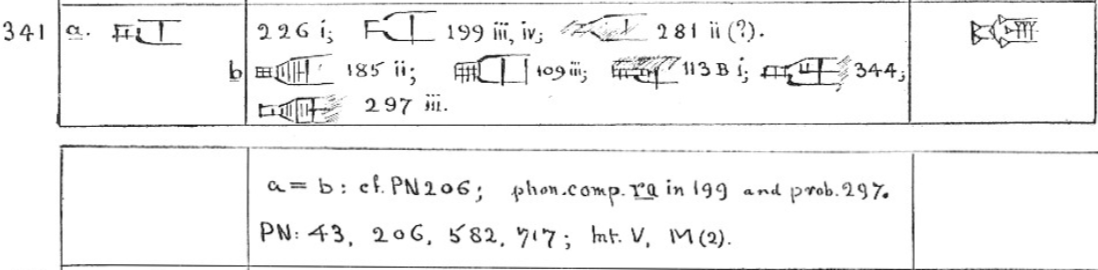 341 a. 226 i; 199 iii, iv; 281 ii (?).
b 185 ii; 109 iii; 113 B i; 344;
297 iii.
a = b: cf. PN 206; phon. comp. ra in 199 and prob. 297.
PN: 43, 206, 582, 717; Int. V, M (2).